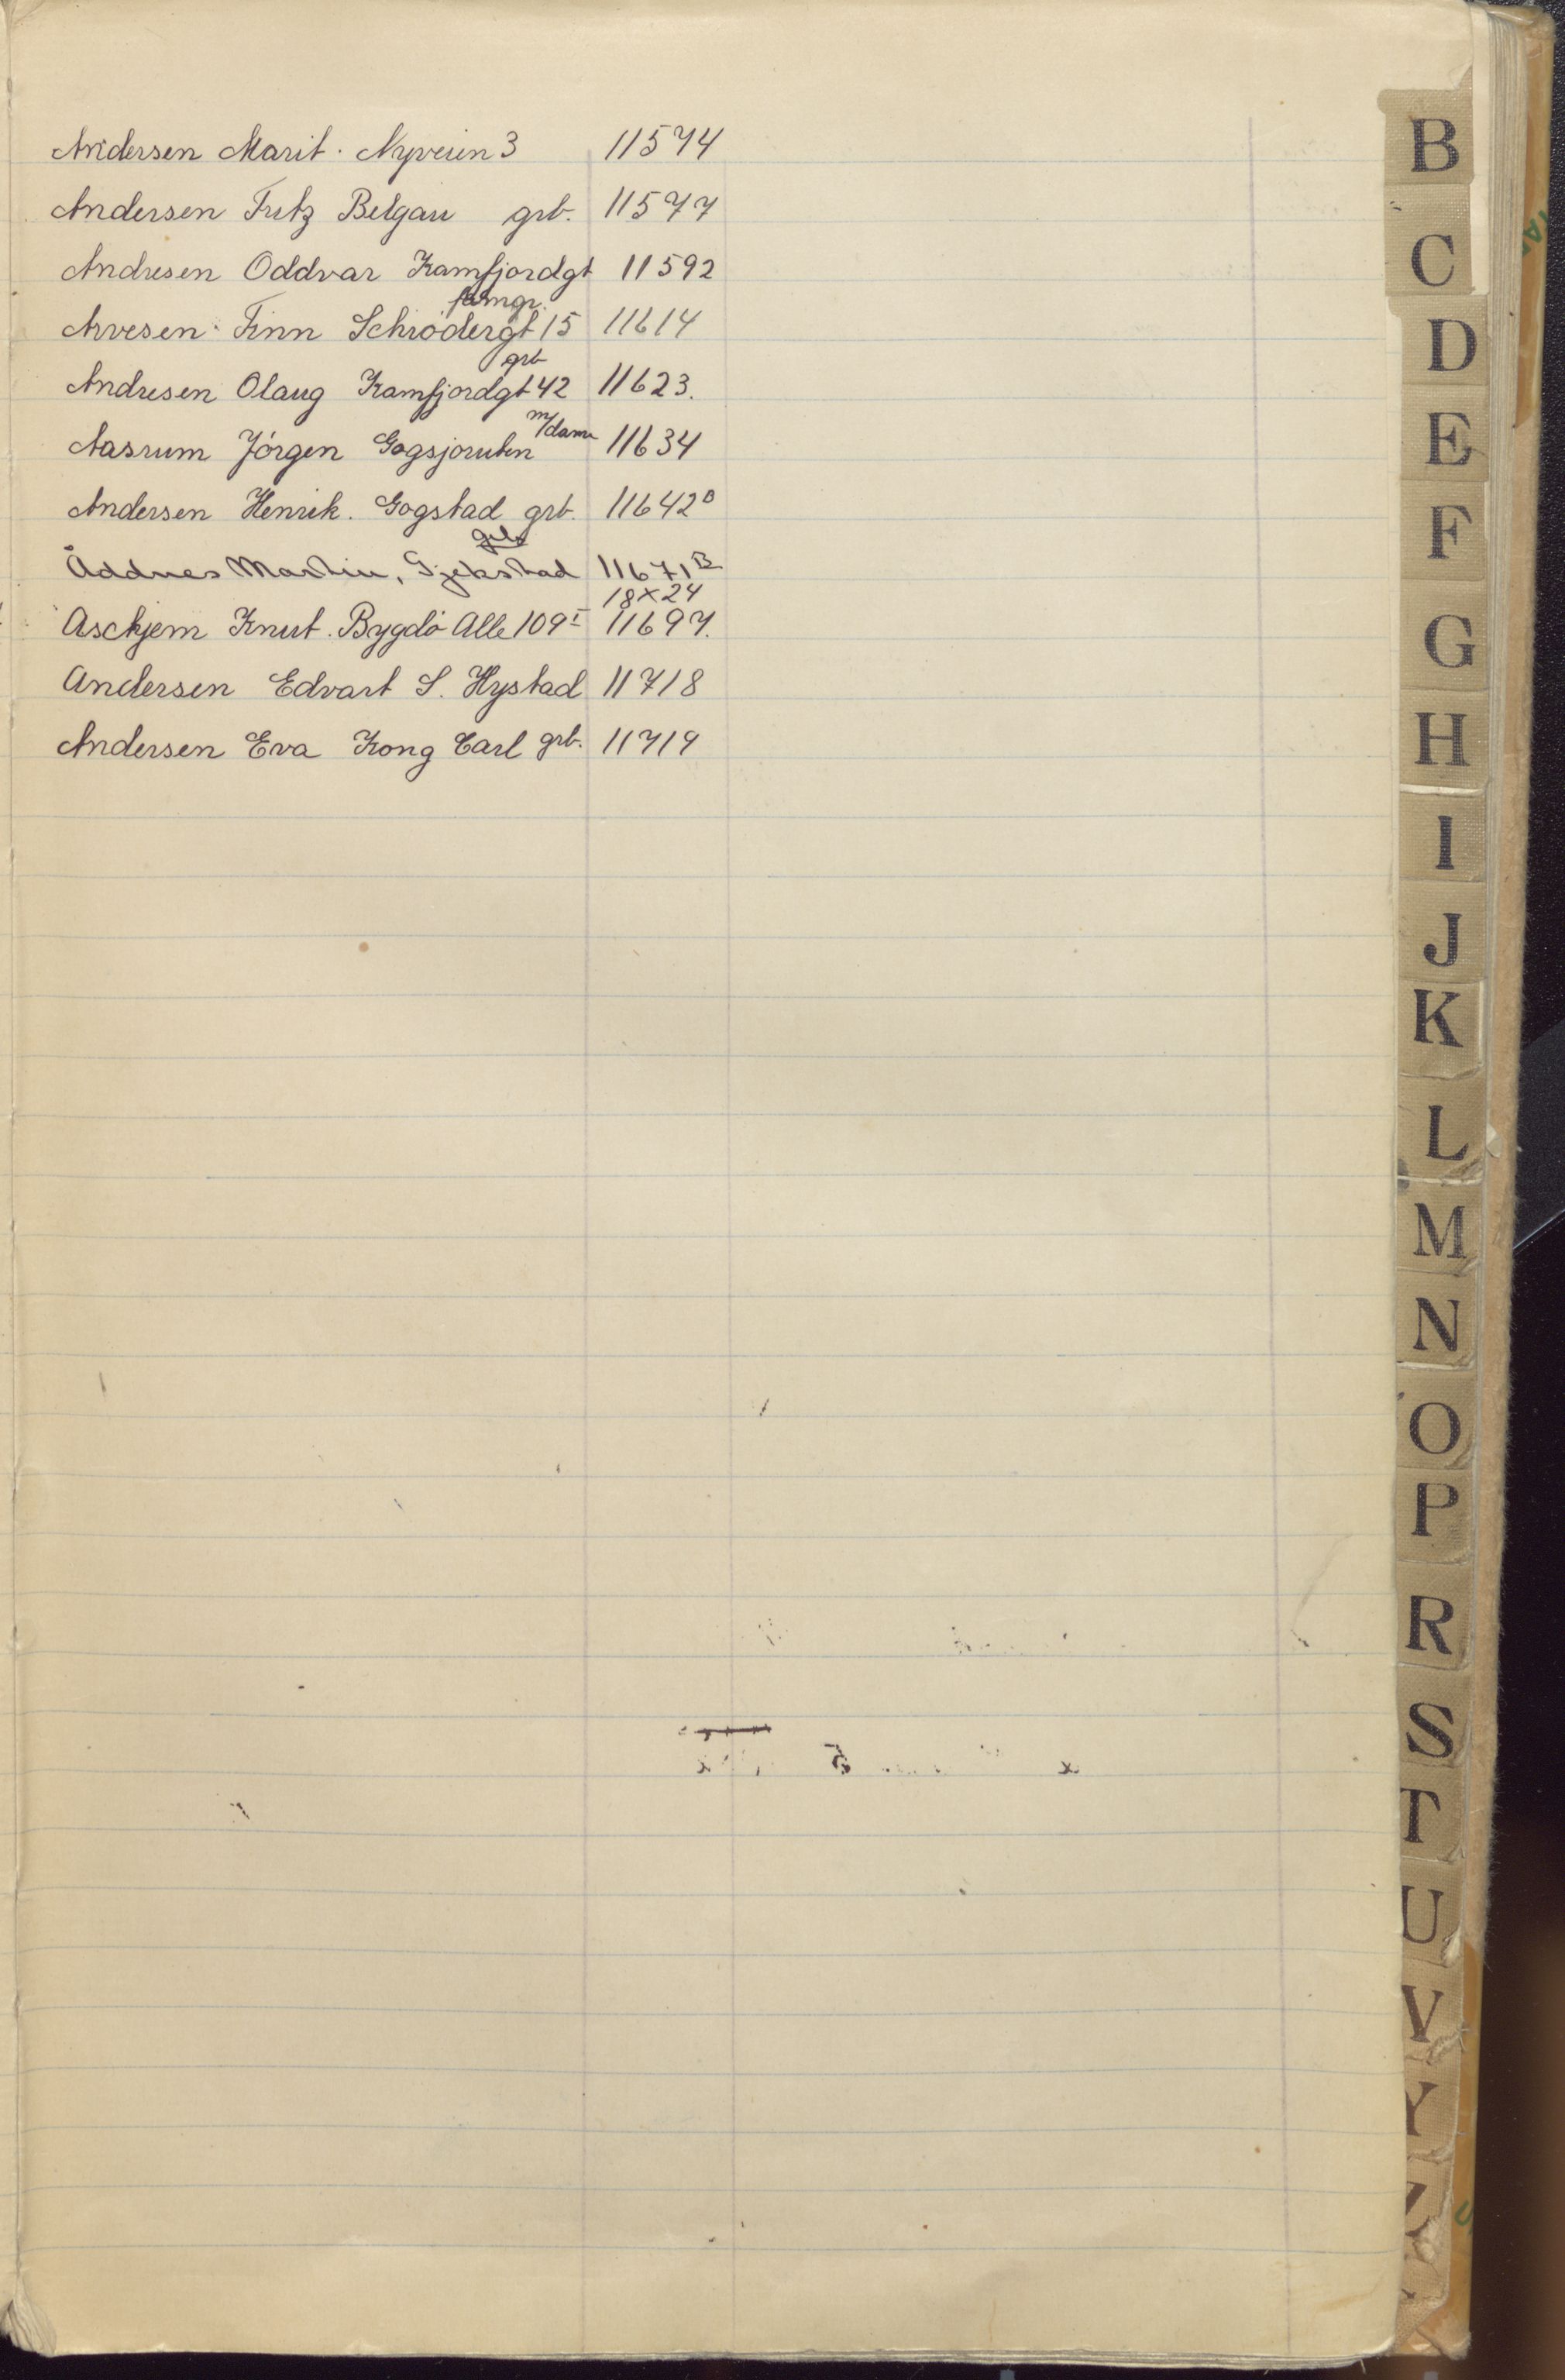 Andersen Marit. Nyveien 3 11574
Andersen Fritz Belgau grb. 11577
Andresen Oddvar Kamfjordgt 11592
famgr.
Arvesen Finn Schrödergt 15 11614
grb
Andresen Olaug Kamfjordgt 42 11623.
m/dame
Aasrum Jörgen 11634
Andersen Henrik. Gogstad grb. 11642B
grb
Åddnes Martin, Gjekstad 11671B
18x24
Askjem Knut. Bygdö Alle 109I 11697.
Andersen Edvart S. Hystad 11718
Andersen Eva Kong Carl grb. 11719
B
C
D
E
F
G
H
I
J
K
L
M
N
O
P
R
S
T
U
V
Y